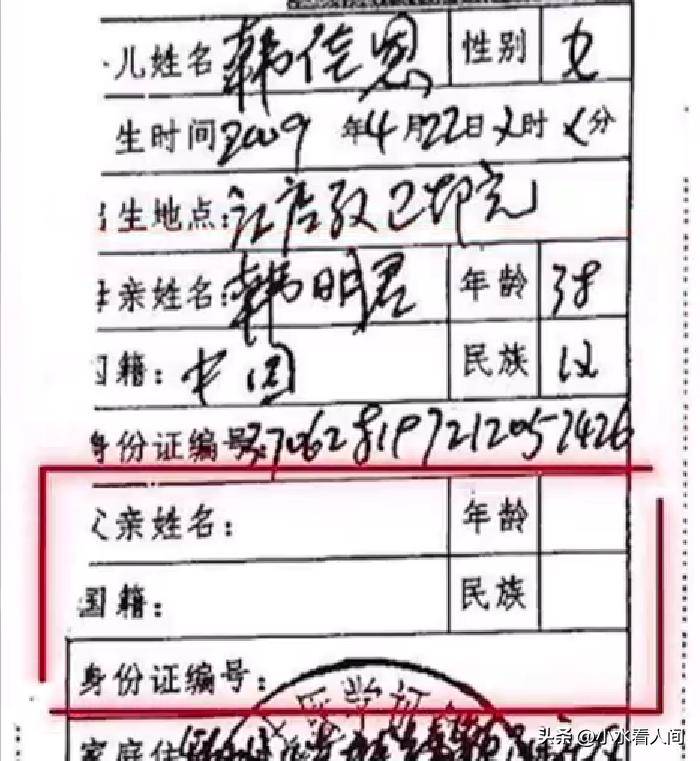 儿姓名 韩佳恩 性别 女
生时间 2009 年 4 月 22 日 X 时 X 分
生地点:
亲姓名: 韩明君 年龄 38
籍: 中国 民族 汉
身份证编号: 370628197212057426
亲姓名: 年龄
国籍: 民族
身份证编号:
医学证
家庭住
头条 @小水看人间